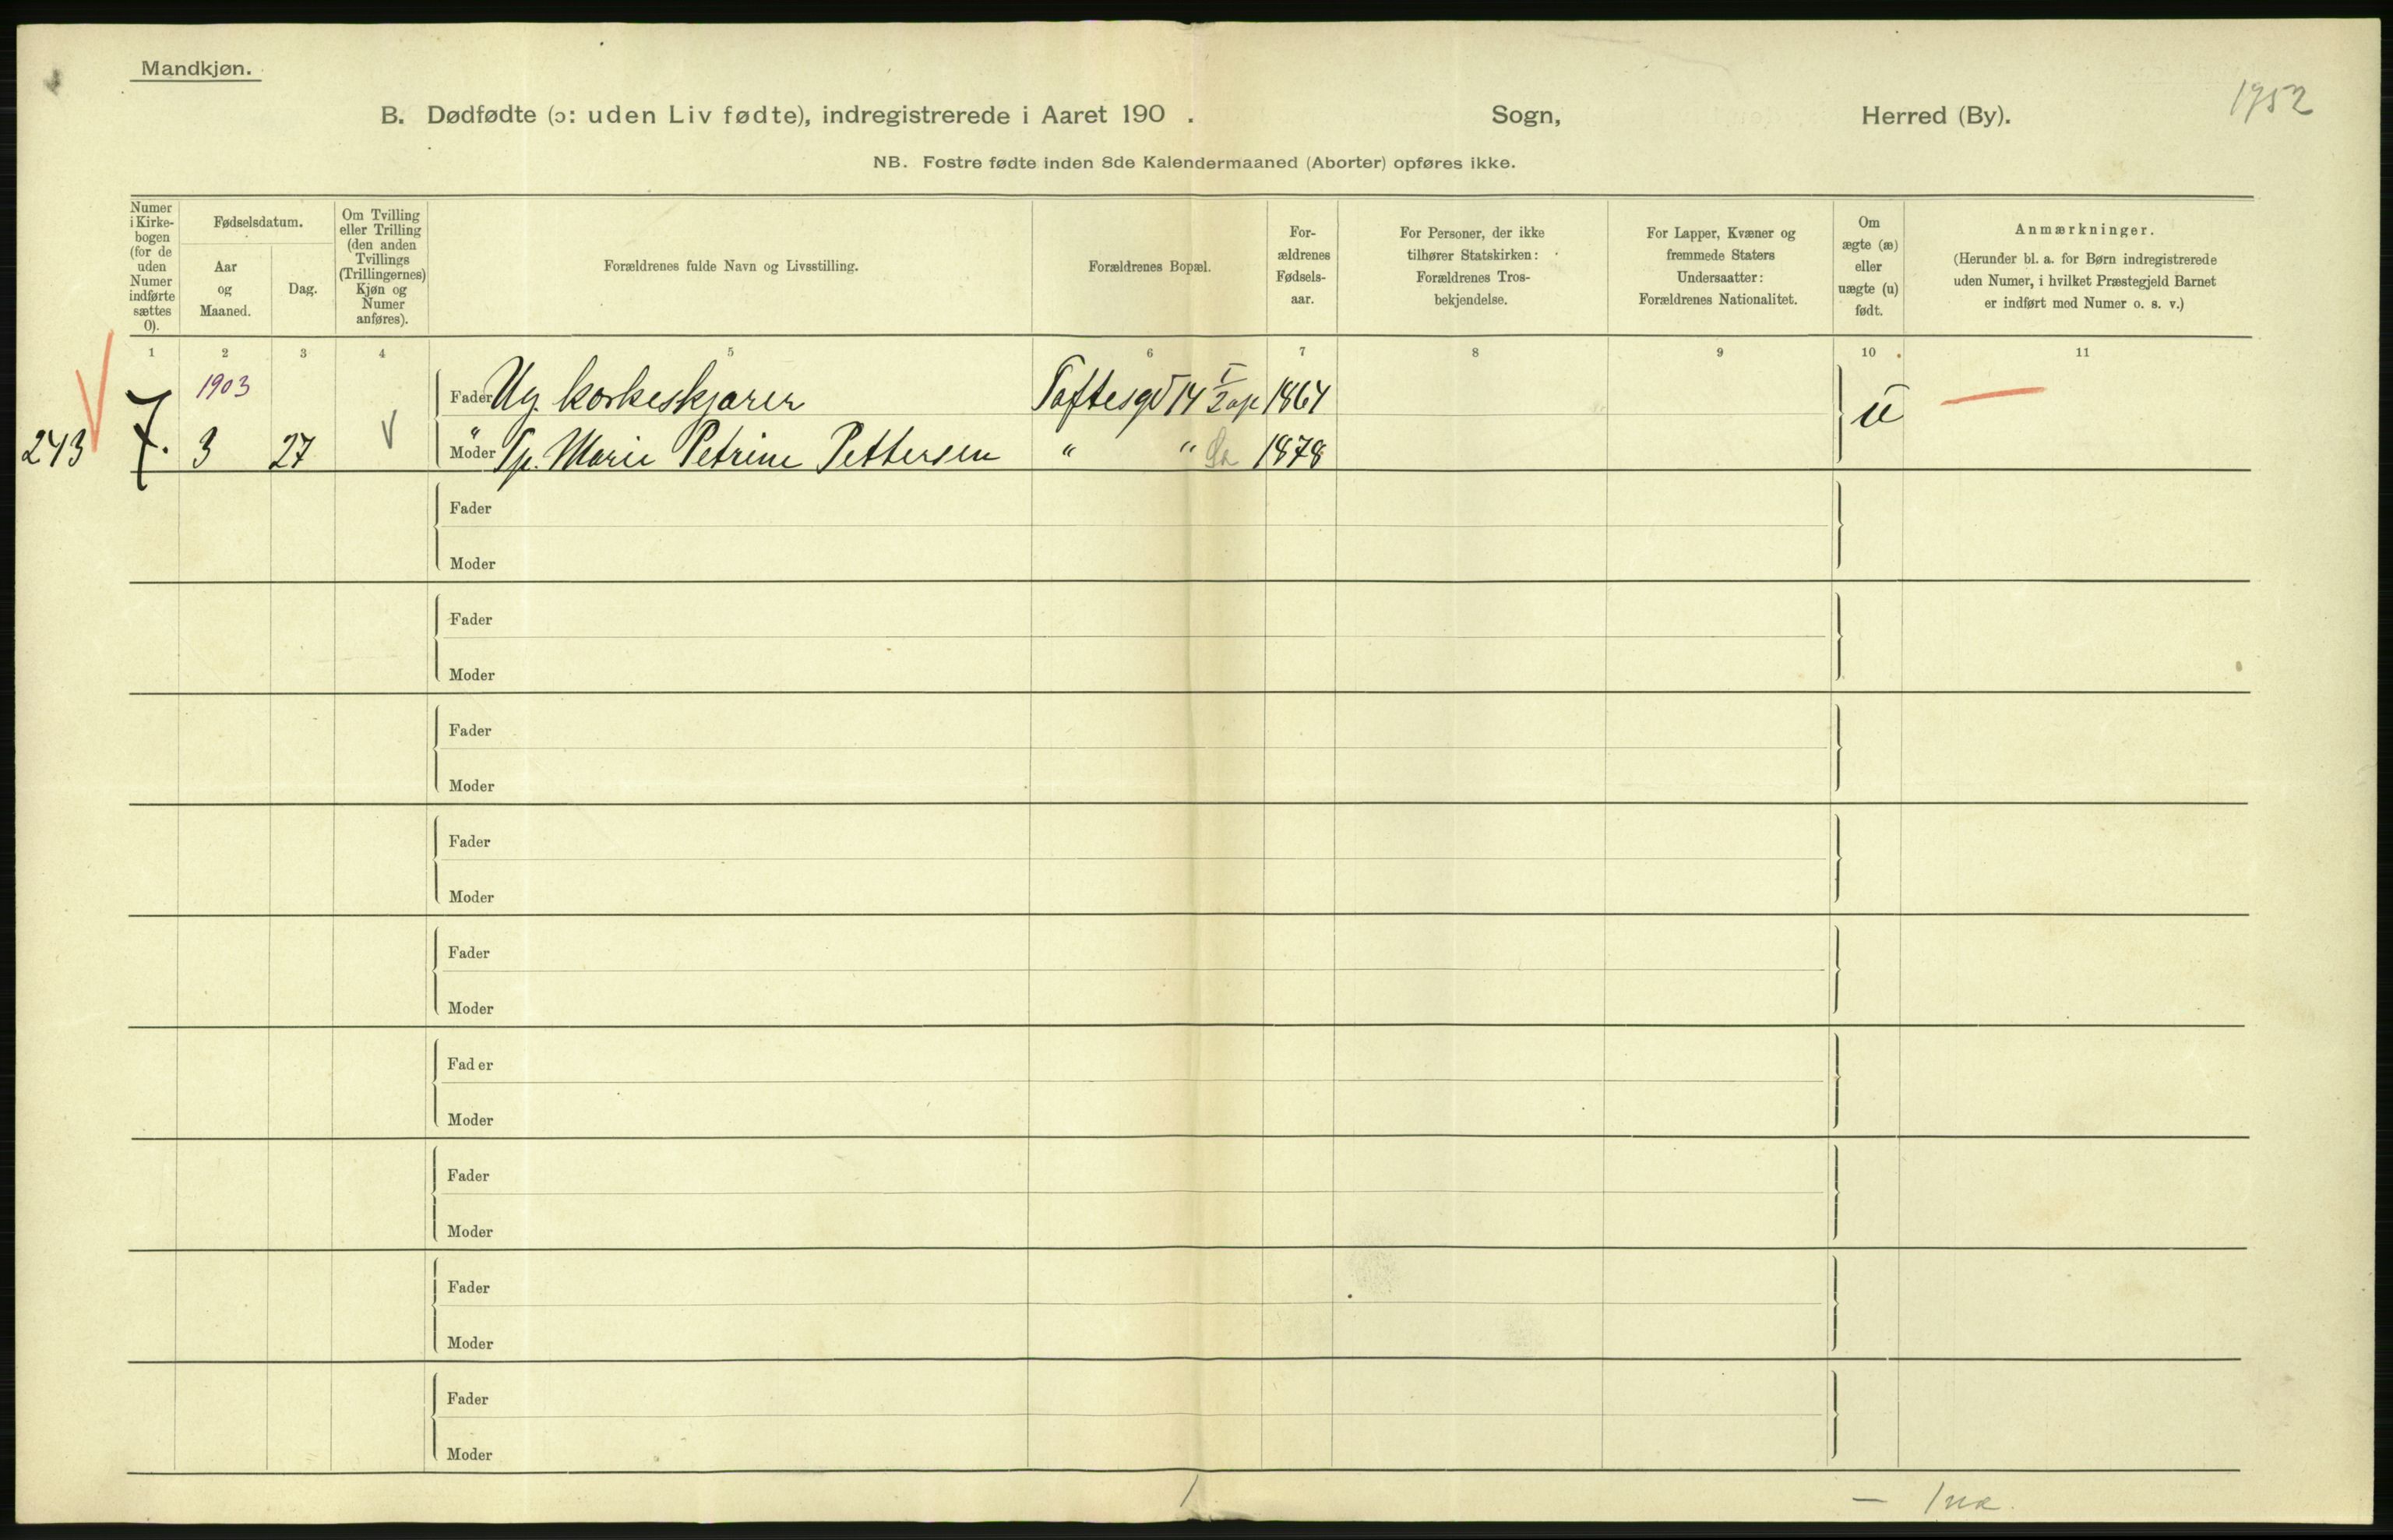 Mandkjøn.
1952
B. Dødfødte (ɔ: uden Liv fødte), indregistrerede i Aaret 190 . Sogn, Herred (By).
NB. Fostre fødte inden 8de Kalendermaaned (Aborter) opføres ikke.
Numer i Kirke-bogen (for de uden Numer indførte sættes 0).
Fødselsdatum.
Aar og Maaned.
Dag.
Om Tvilling eller Trilling (den anden Tvillings (Trillingernes) Kjøn og Numer anføres).
Forældrenes fulde Navn og Livsstilling.
Forældrenes Bopæl.
For-ældrenes Fødsels-aar.
For Personer, der ikke tilhører Statskirken: Forældrenes Tros-bekjendelse.
For Lapper, Kvæner og fremmede Staters Undersaatter: Forældrenes Nationalitet.
Om ægte (æ) eller uægte (u) født.
Anmærkninger.
(Herunder bl. a. for Børn indregistrerede uden Numer, i hvilket Præstegjeld Barnet er indført med Numer o. s. v.)
1 2 3 4 5 6 7 8 9 10 11
1903
Fader Ug. korkeskjærer Toftesgd 14 1864
u
243 7. 3 27
Moder Tp. Marie Petrine Pettersen " " 1878
Fader
Moder
Fader
Moder
Fader
Moder
Fader
Moder
Fader
Moder
Fader
Moder
Fader
Moder
Fader
Moder
Fader
Moder
1 — 1